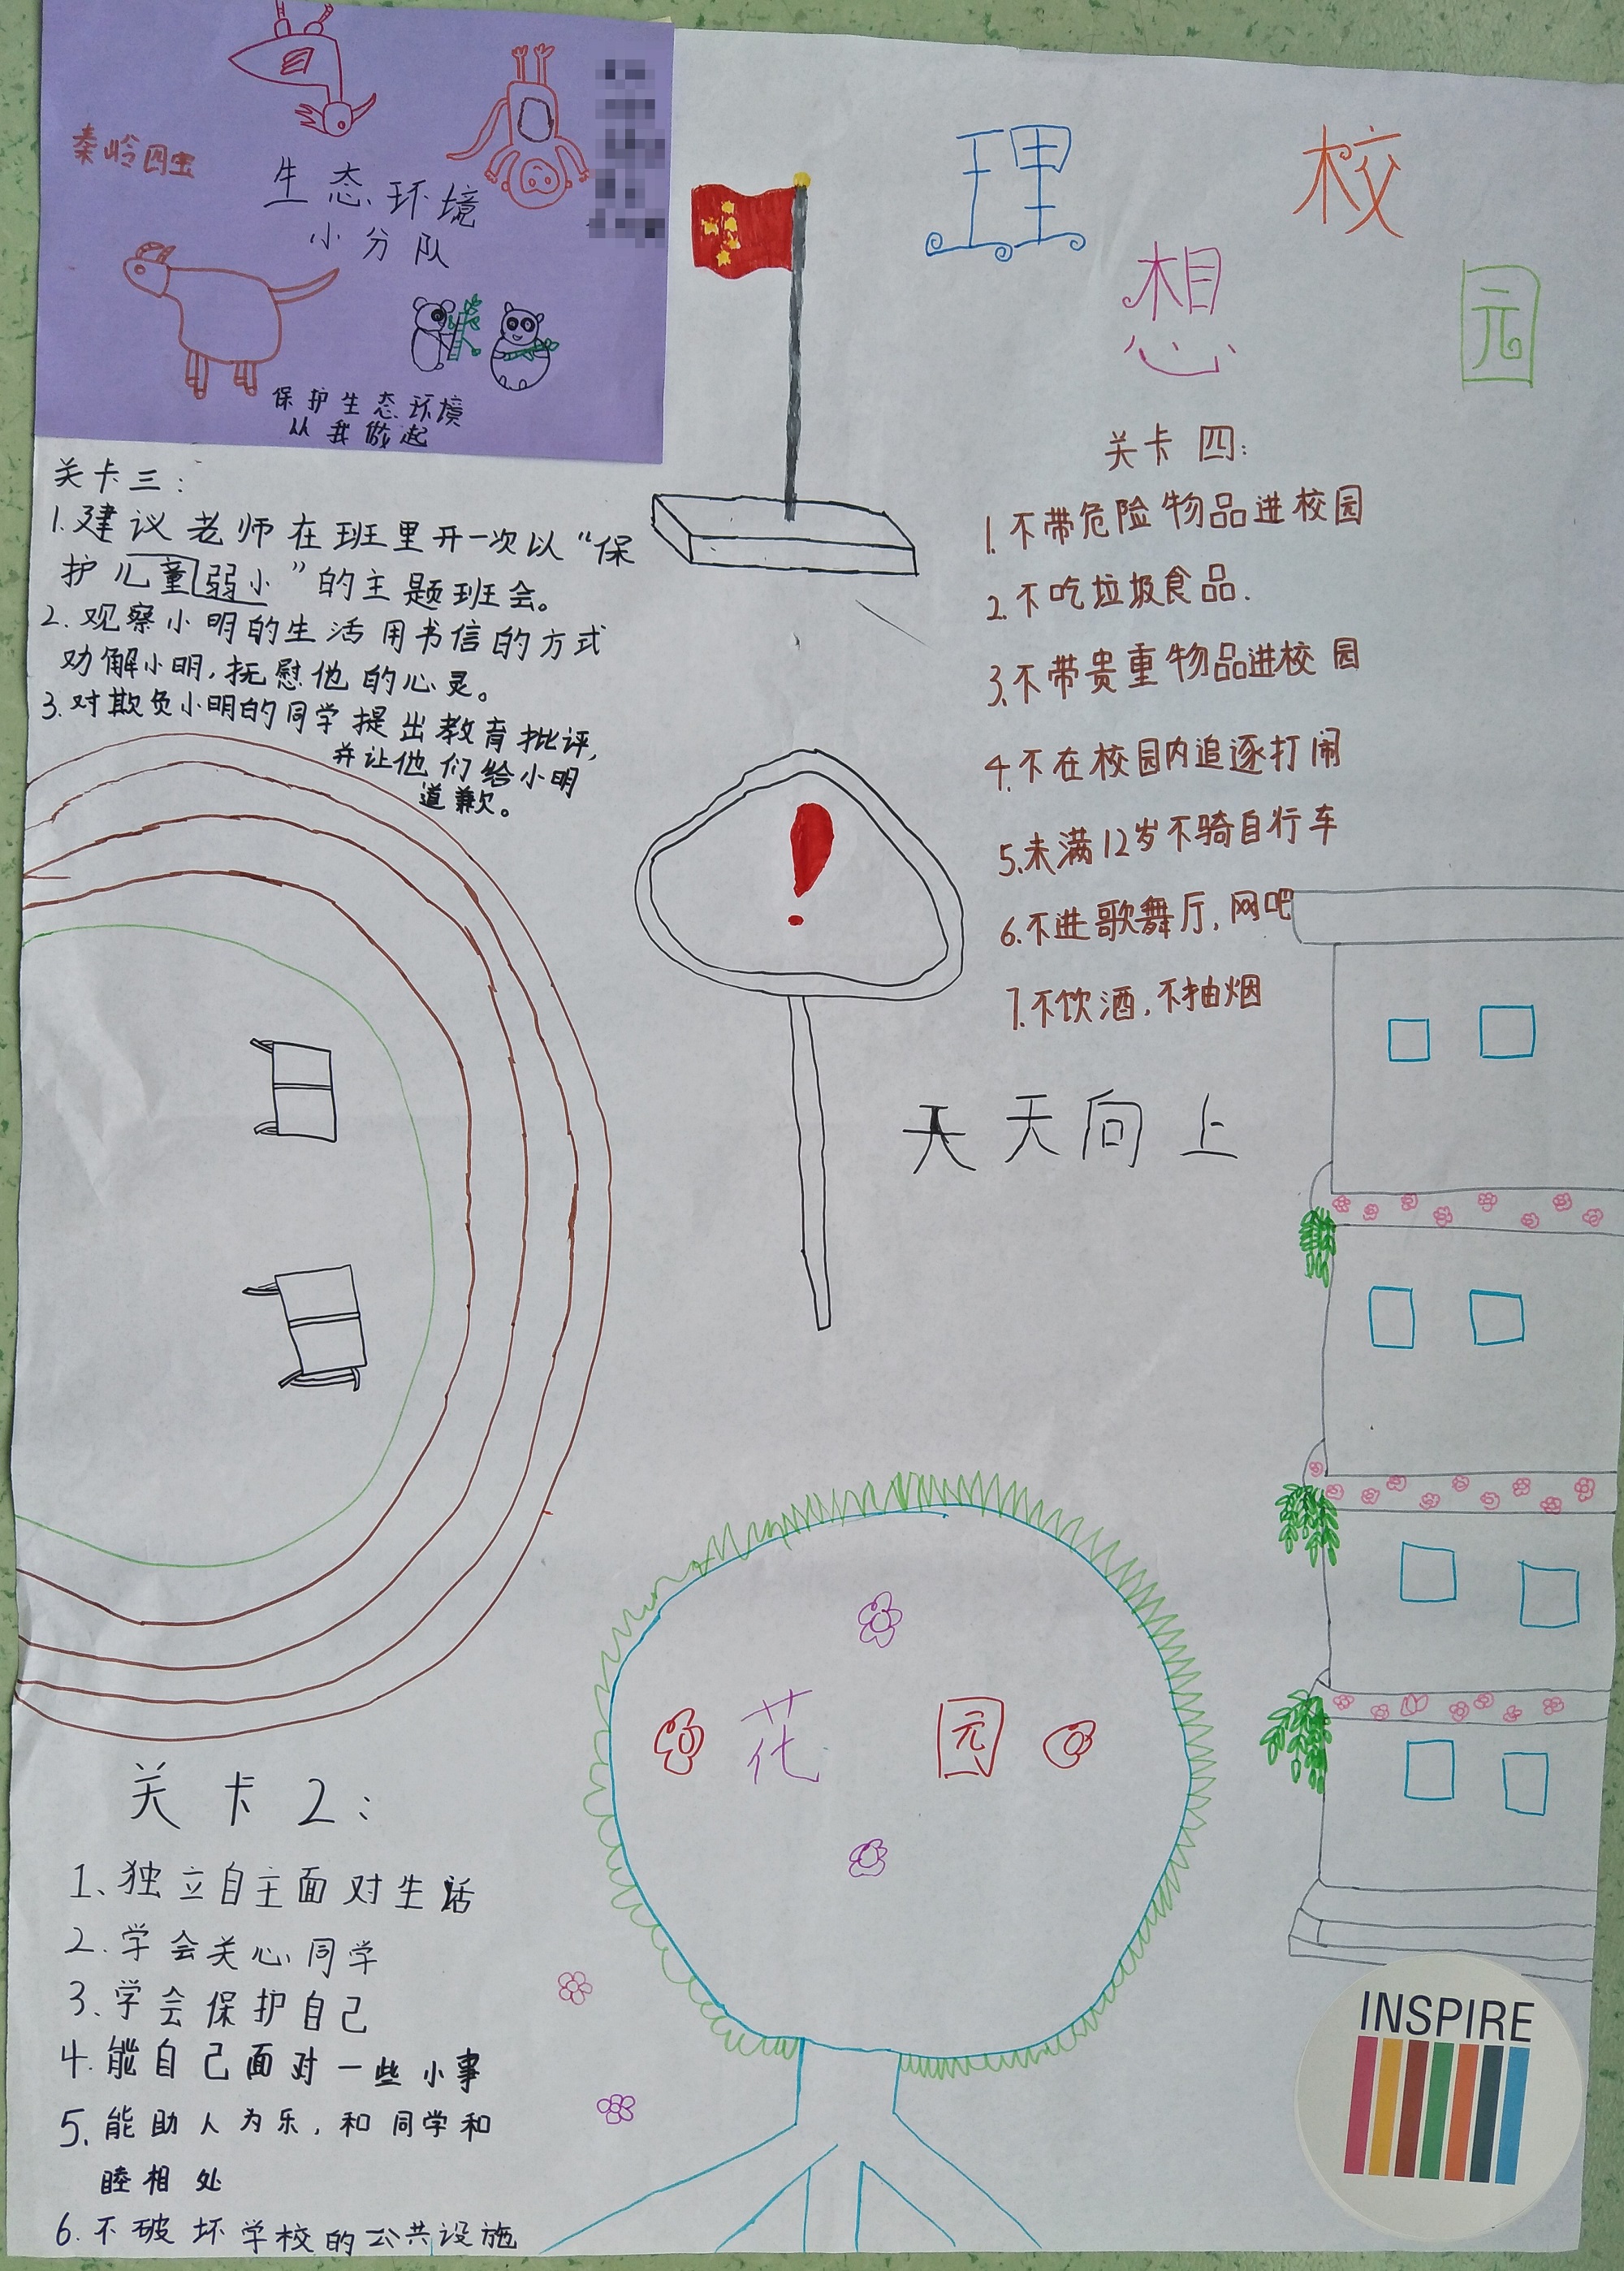 秦岭四宝
生态环境
小分队
保护生态环境
从我做起
理想校园
关卡三：
1.建议老师在班里开一次以“保
护儿童弱小”的主题班会。
2.观察小明的生活用书信的方式
劝解小明，抚慰他的心灵。
3.对欺负小明的同学提出教育批评，
并让他们给小明
道歉。
关卡四：
1.不带危险物品进校园
2.不吃垃圾食品.
3.不带贵重物品进校园
4.不在校园内追逐打闹
5.未满12岁不骑自行车
6.不进歌舞厅，网吧
7.不饮酒，不抽烟
!
天天向上
花园
关卡2：
1、独立自主面对生活
2.学会关心同学
3、学会保护自己
4.能自己面对一些小事
5.能助人为乐，和同学和
睦相处
6.不破坏学校的公共设施
INSPIRE